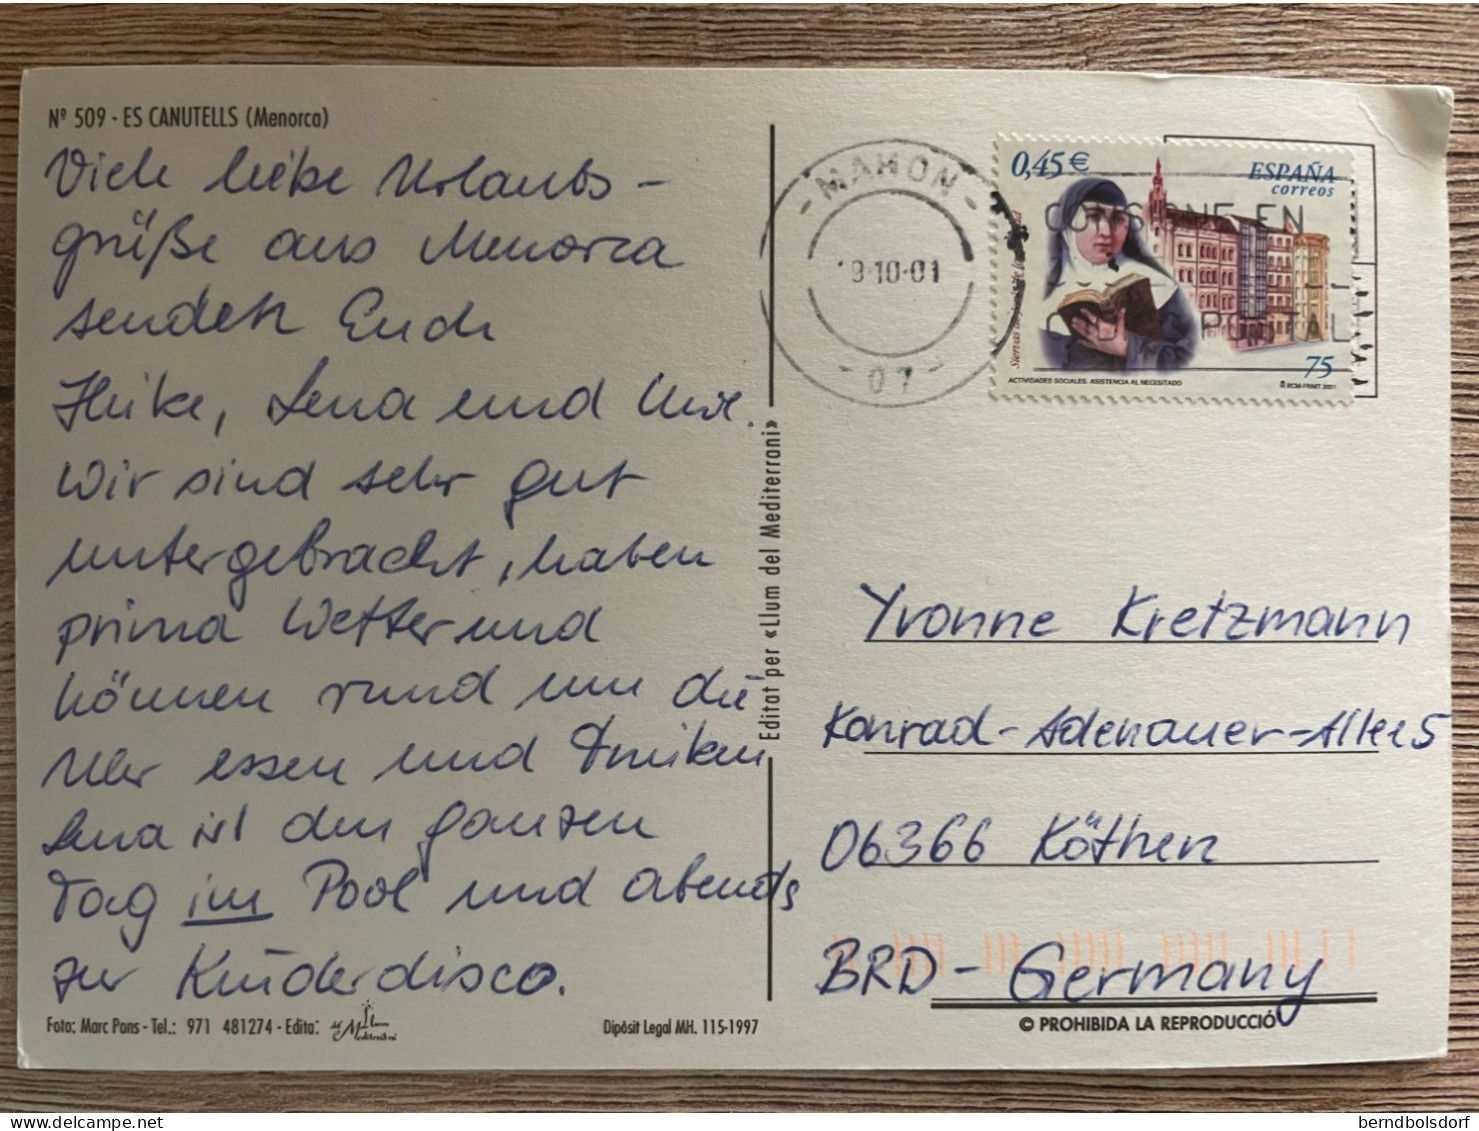 Nº 509 - ES CANUTELLS (Menorca)
Viele liebe Urlaubs-
grüße aus Menorca
senden Euch
Heike, Lena und Uwe.
Wir sind sehr gut
untergebracht, haben
prima Wetter und
können rund um die
Uhr essen und trinken
Lena ist den ganzen
Tag im Pool und abends
zur Kinderdisco.
Foto: Marc Pons - Tel.: 971 481274 - Edita:
Dipòsit Legal MH. 115-1997
Editat per «Llum del Mediterrani»
- MAHON -
9-10-01
- 07 -
0,45€
ESPAÑA
correos
EN
POSTAL
75
ACTIVIDADES SOCIALES. ASISTENCIA AL NECESITADO
RCM-FNMT 2001
Yvonne Kretzmann
Konrad-Adenauer-Allee 5
06366 Köthen
BRD - Germany
© PROHIBIDA LA REPRODUCCIÓ
berndbolsdorf